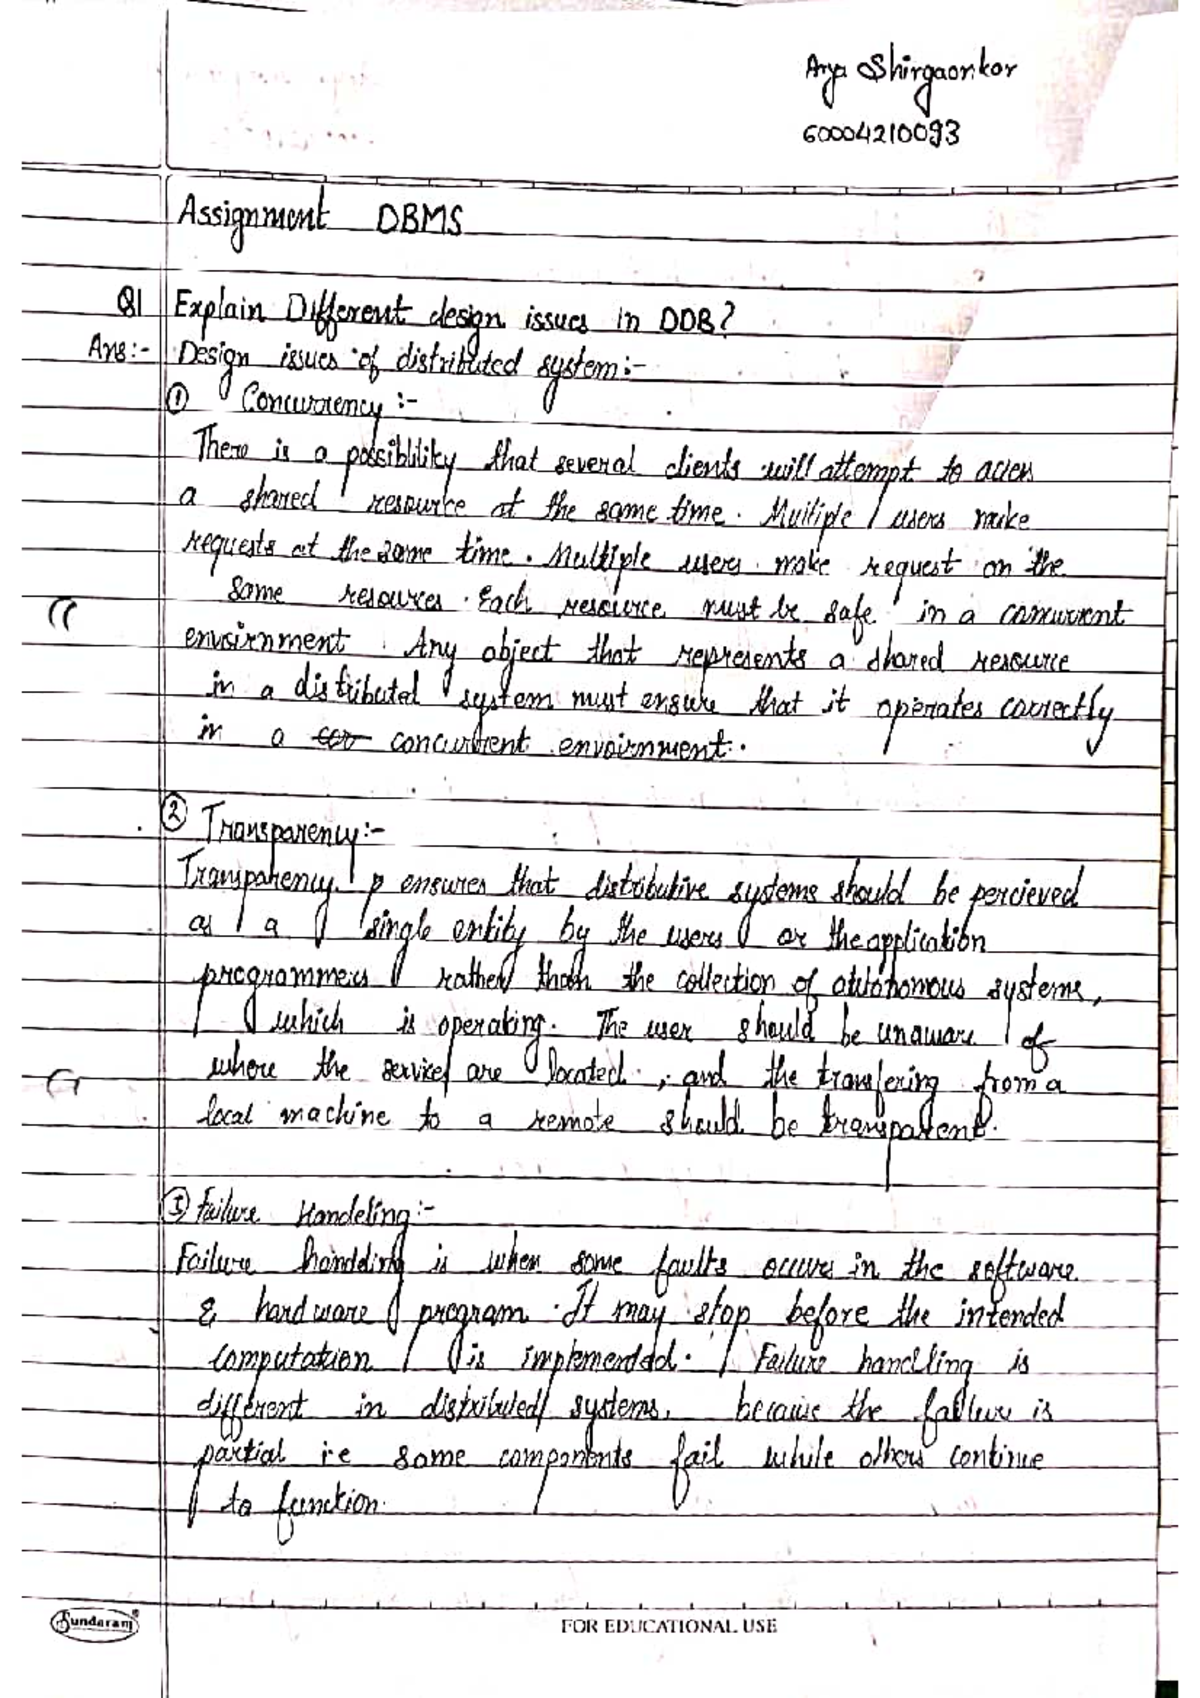 Arya Shirgaonkar
60004210093
Assignment DBMS
Q1 Explain Different design issues in DDB?
Ans:- Design issues of distributed system:-
① Concurrency :-
There is a possiblility that several clients will attempt to access
a shared resource at the same time. Multiple users make
requests at the same time. Multiple users make request on the
same resources. Each resource must be safe in a concurrent
envoirnment. Any object that represents a shared resource
in a distributed system must ensure that it operates correctly
in a concurrent envoirnment.
② Transparency:-
Transparency p ensures that distributive systems should be percieved
as a single entity by the users or the application
programmers rather than the collection of autonomous systems,
which is operating. The user should be unaware of
where the services are located, and the transfering from a
local machine to a remote should be transparent.
③ Failure Handeling:-
Failure handling is when some faults occurs in the software
& hardware program. It may stop before the intended
computation is implemented. Failure handling is
different in distributed systems, because the failure is
partial i.e some components fail while others continue
to function.
Sundaram®
FOR EDUCATIONAL USE